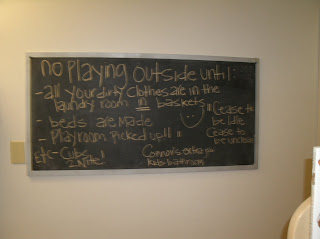 no Playing outside until:
- all your dirty clothes are in the
laundry room in baskets
- beds are Made
- Playroom Picked up!!
"Cease to
be idle
Cease to
be unclean"
Etc - Cubs
Connor's extra pr.
kids bathroom